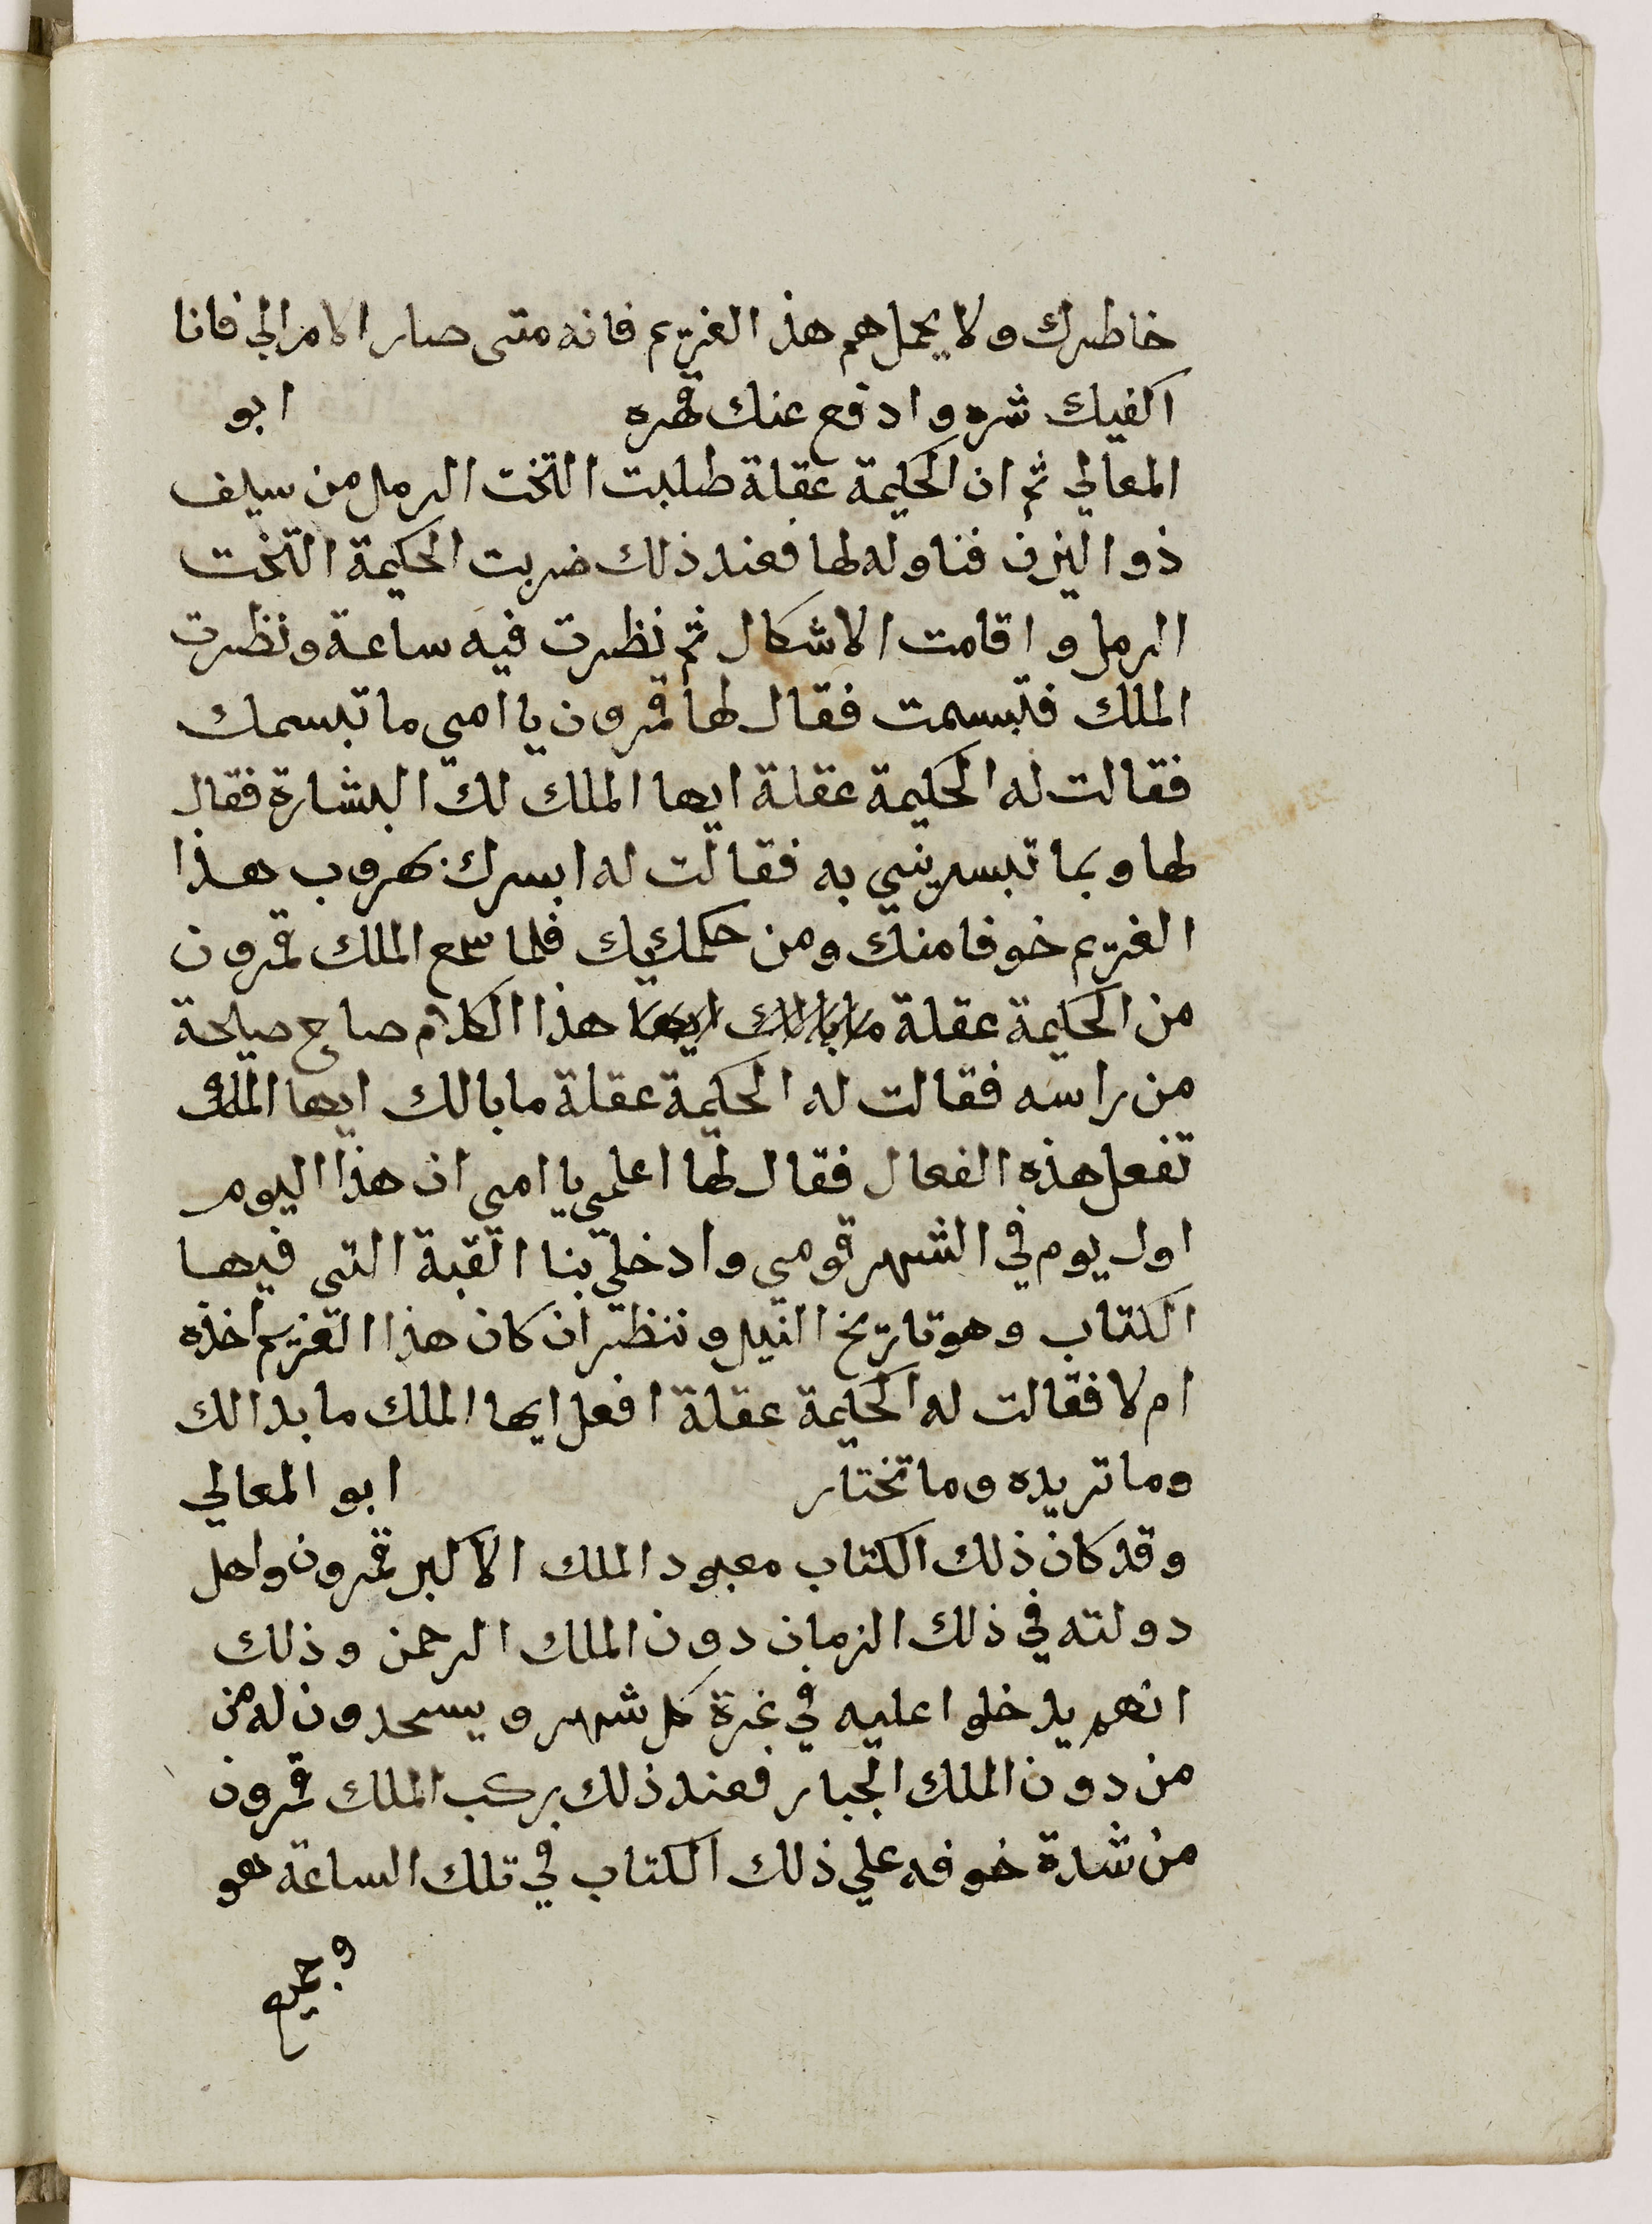 خاطرك ولا يحمل هم هذ الغريم فانه متى صار الامر الي فانا
اكفيك شره وادفع عنك قهره ابو
المعالي ثم ان الحكيمة عقلة طلبت التخت الرمل من سيف
ذو اليزن فناوله لها فعند ذلك ضربت الحكيمة التخت
الرمل واقامت الاشكال ثم نظرت فيه ساعة ونظرت
الملك فتبسمت فقال لها قمرون يا امي ما تبسمك
فقالت له الحكيمة عقلة ايها الملك لك البشارة فقال
لها وبما تبسريني به فقالت له ابسرك بهروب هذا
الغريم خوفا منك ومن حكمك فلما سمع الملك قمرون
من الحكيمة عقلة ما بالك ايها هذا الكلام صاح صيحة
من راسه فقالت له الحكيمة عقلة ما بالك ايها الملك
تفعل هذه الفعال فقال لها اعلمي يا امي ان هذا اليوم
اول يوم في الشهر قومي وادخلي بنا القبة التي فيها
الكتاب وهو تاريخ النيل وننظر ان كان هذا الغريم اخذه
ام لا فقالت له الحكيمة عقلة افعل ايها الملك ما بدا لك
وما تريده وما تختار ابو المعالي
وقد كان ذلك الكتاب معبود الملك الاكبر قمرون واهل
دولته في ذلك الزمان دون الملك الرحمن وذلك
انهم يدخلوا عليه في غرة كل شهر ويسجدون له من
من دون الملك الجبار فعند ذلك ركب الملك قمرون
من شدة خوفه علي ذلك الكتاب في تلك الساعة هو
وجميع